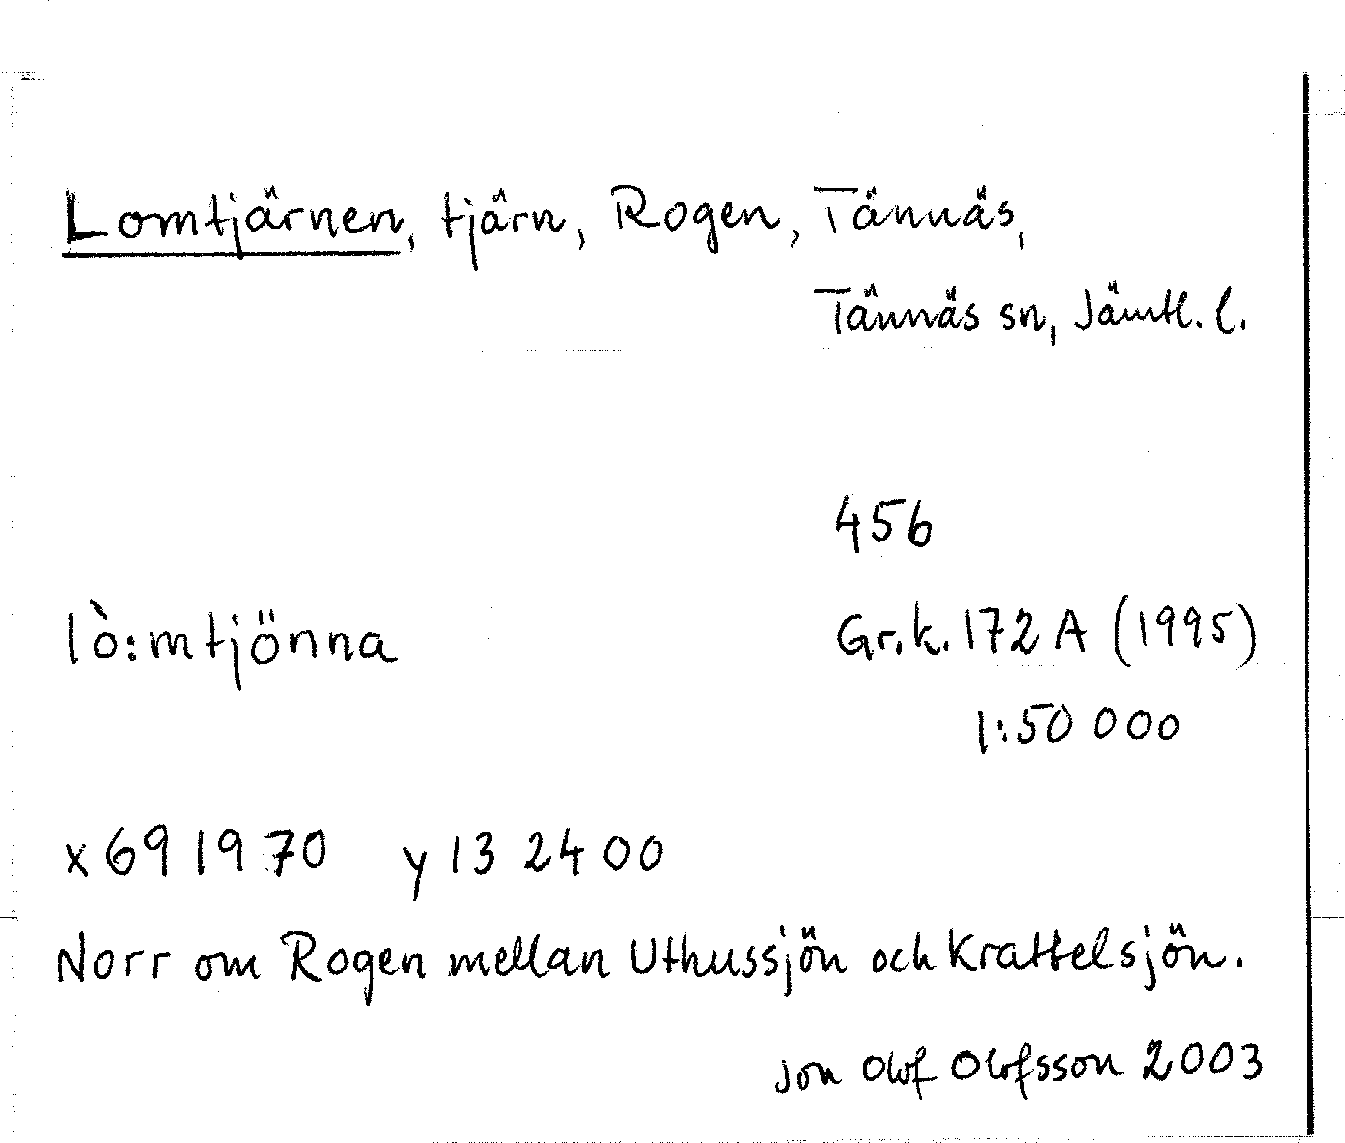 Lomtjärnen, tjärn, Rogen, Tännäs,
Tännäs sn, Jämtl. l.
456
lò:mtjönna
Gr.k. 172 A (1995)
1:50 000
x 69 19 70 y 13 24 00
Norr om Rogen mellan Uthussjön och Krattelsjön.
Jon Olof Olofsson 2003